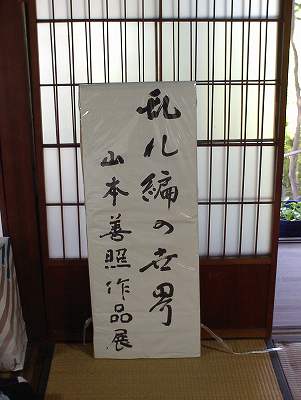 乱れ編の世界
山本善照作品展